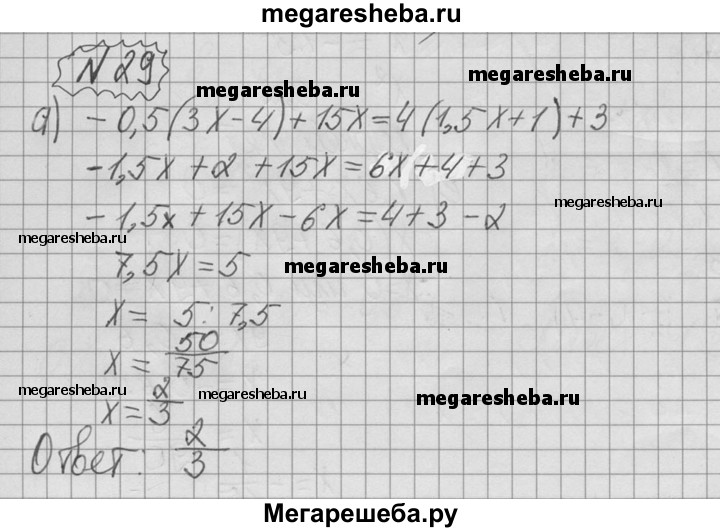 megaresheba.ru
N 29
megaresheba.ru
megaresheba.ru
а) - 0,5(3x-4)+15x=4(1,5x+1)+3
-1,5x+2+15x=6x+4+3
megaresheba.ru
-1,5x+15x-6x=4+3-2
megaresheba.ru
7,5x=5
megaresheba.ru
x= 5:7,5
x= 50/75
megaresheba.ru
megaresheba.ru
megaresheba.ru
x= 2/3
Ответ: 2/3
Мегарешеба.ру